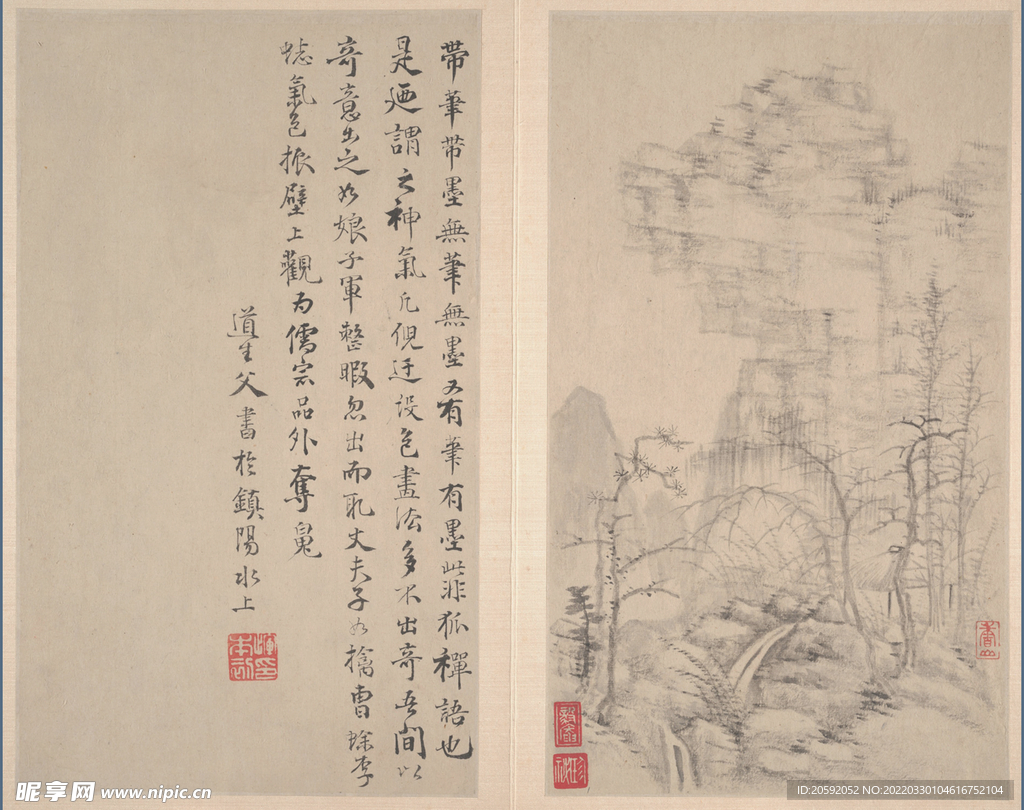 帶筆帶墨無筆無墨又有筆有墨此非狐禪語也
是廼謂之神氣凡倪迂設色畫法多不出奇吾間以
奇意出之如娘子軍整暇忽出而耻丈夫子如擒曹蜍李
氣色振壁上觀为儒宗品外奪
道生父書於鎮陽水上
昵享网 www.nipic.cn
ID:20592052 NO:20220330104616752104